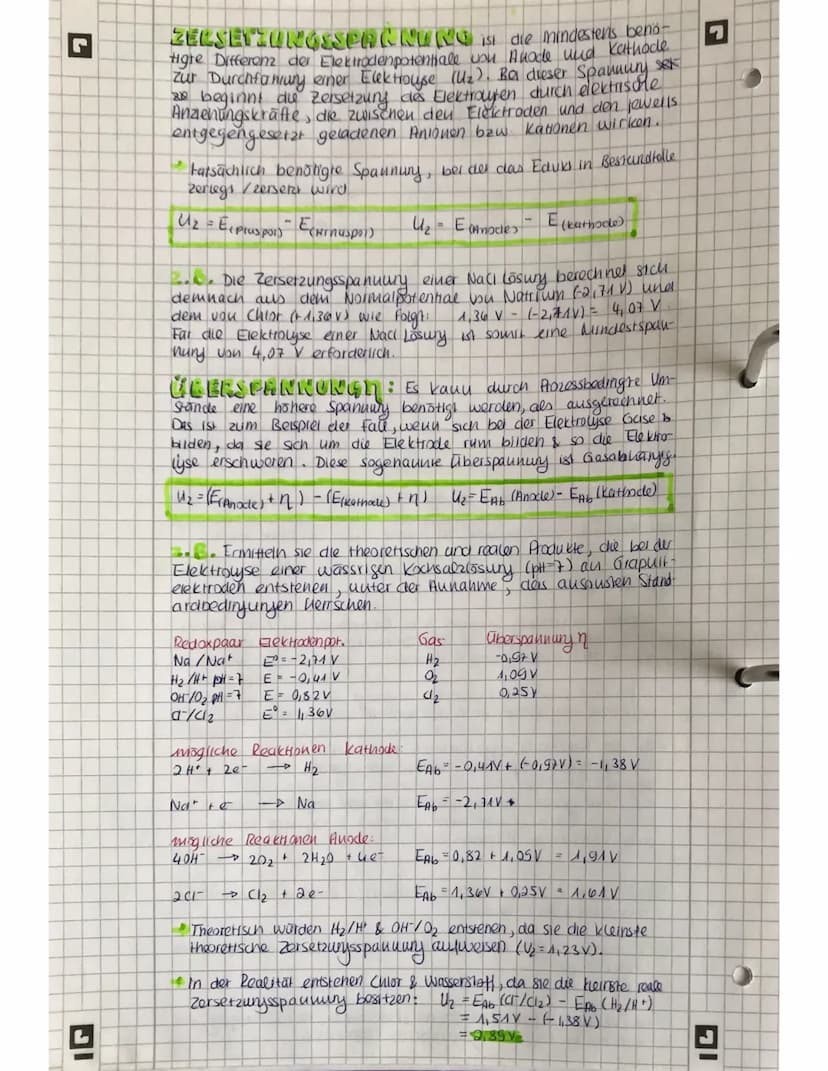 ZERSETZUNGSSPANNUNG ist die mindestens benö-
tigte Differenz der Elektrodenpotentiale von Anode und Kathode
zur Durchführung einer Elektrolyse (Uz). Bei dieser Spannung
beginnt die Zersetzung des Elektrolyten durch elektrische
Anziehungskräfte, die zwischen den Elektroden und den jeweils
entgegengesetzt geladenen Anionen bzw. Kationen wirken.
tatsächlich benötigte Spannung, bei der das Edukt in Bestandteile
zerlegt / zersetzt wird
Uz = E(Pluspol) - E(Minuspol) Uz = E(Anode) - E(Kathode)
z.B. Die Zersetzungsspannung einer NaCl Lösung berechnet sich
demnach aus dem Normalpotential von Natrium (-2,71 V) und
dem von Chlor (+1,36V) wie folgt: 1,36 V - (-2,71V) = 4,07 V
Für die Elektrolyse einer NaCl Lösung ist somit eine Mindestspan-
nung von 4,07 V erforderlich.
ÜBERSPANNUNG η: Es kann durch Prozessbedingte Um-
stände eine höhere Spannung benötigt werden, als ausgerechnet.
Das ist zum Beispiel der Fall, wenn sich bei der Elektrolyse Gase
bilden, da sie sich um die Elektrode rum bilden & so die Elektro-
lyse erschweren. Diese sogenannte Überspannung ist Gasabhängig.
Uz = (E(Anode) + η) - (E(Kathode) + η) Uz = EAb (Anode) - EAb (Kathode)
z.B. Ermitteln sie die theoretischen und realen Produkte, die bei der
Elektrolyse einer wässrigen Kochsalzlösung (pH=7) an Graphit-
elektroden entstehen, unter der Annahme, das ansonsten Stand-
ardbedingungen herrschen.
Redoxpaar Elektrodenpot. Gas Überspannung η
Na / Na⁺ E⁰ = -2,71 V H₂ -0,97 V
H₂/H⁺ pH=7 E = -0,41 V O₂ 1,09V
OH⁻/O₂ pH=7 E = 0,82V Cl₂ 0,25V
Cl⁻/Cl₂ E⁰ = 1,36V
mögliche Reaktionen Kathode:
2H⁺ + 2e⁻ → H₂ EAb = -0,41V + (-0,97V) = -1,38 V
Na⁺ + e⁻ → Na EAb = -2,71V
mögliche Reaktionen Anode:
4OH⁻ → 2O₂ + 2H₂O + 4e⁻ EAb = 0,82 + 1,09V = 1,91V
2Cl⁻ → Cl₂ + 2e⁻ EAb = 1,36V + 0,25V = 1,61V
Theoretisch würden H₂/H⁺ & OH⁻/O₂ entstehen, da sie die kleinste
theoretische Zersetzungsspannung aufweisen (Uz = 1,23V).
In der Realität entstehen Chlor & Wasserstoff, da sie die kleinste reale
Zersetzungsspannung besitzen: Uz = EAb (Cl⁻/Cl₂) - EAb (H₂/H⁺)
= 1,51V - (-1,38V)
= 2,89V